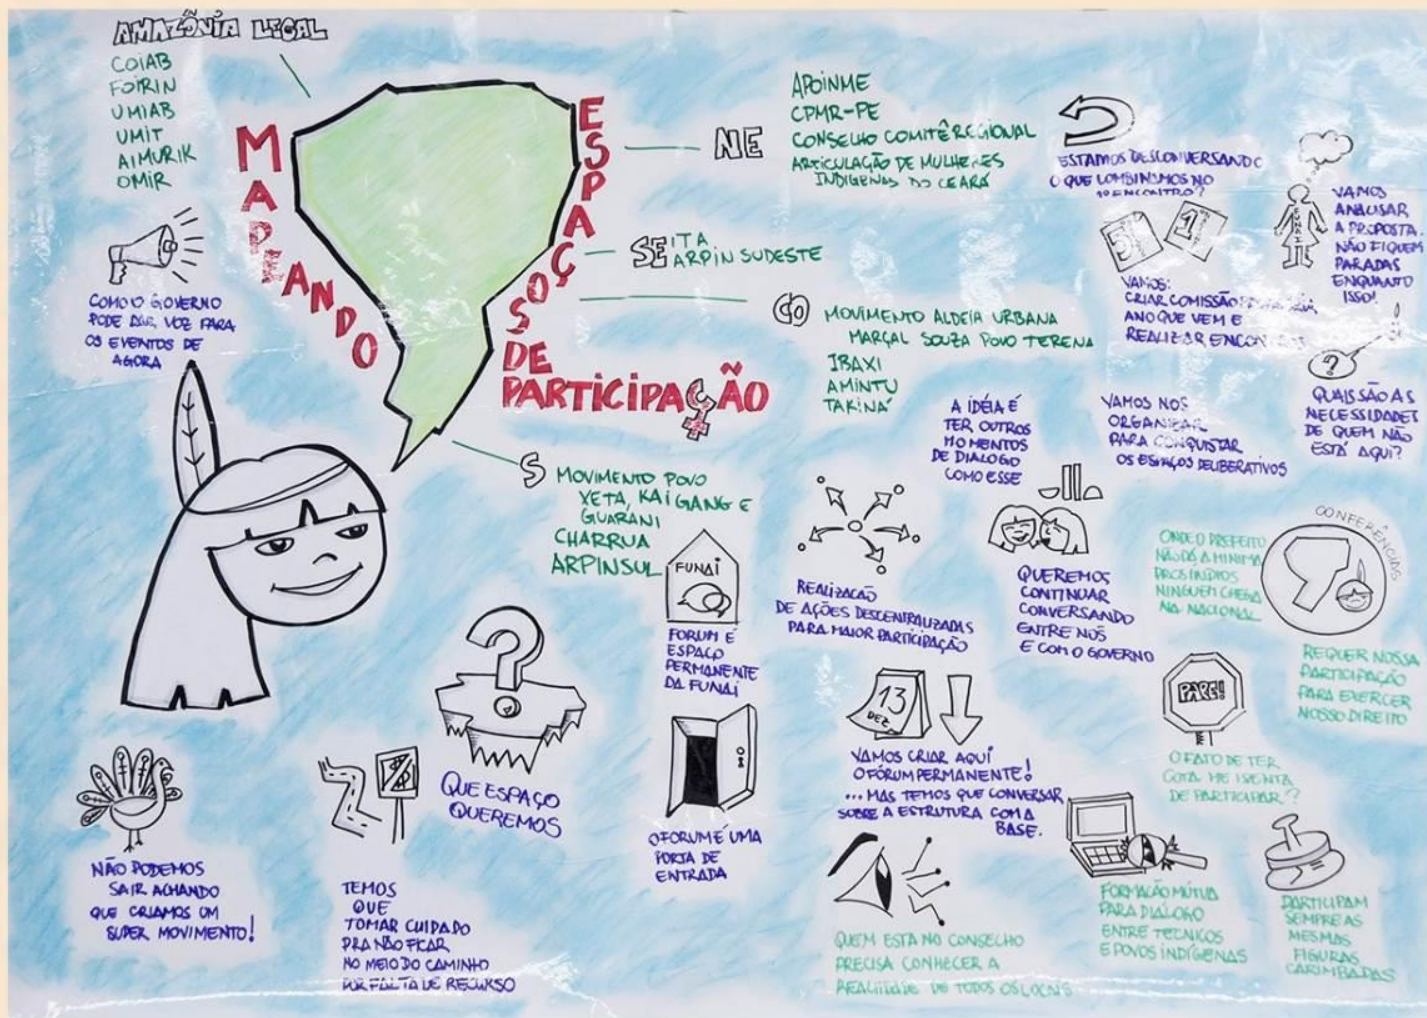 AMAZÔNIA LEGAL
COIAB
FOIRIN
UMIAB
UMIT
AIMURIK
OMIR
MAPEANDO
ESPAÇOS
DE
PARTICIPAÇÃO
NE
APOINME
CPMR-PE
CONSELHO COMITÊ REGIONAL
ARTICULAÇÃO DE MULHERES
INDIGENAS DO CEARÁ
SE
ITA
ARPIN SUDESTE
CO
MOVIMENTO ALDEIA URBANA
MARÇAL SOUZA POVO TERENA
IBAXI
AMINTU
TAKINÁ
S
MOVIMENTO POVO
XETA, KAIGANG E
GUARANI
CHARRUA
ARPINSUL
COMO O GOVERNO
PODE DAR VOZ PARA
OS EVENTOS DE
AGORA
ESTAMOS DESCONVERSANDO
O QUE COMBINAMOS NO
1º ENCONTRO?
VAMOS
ANALISAR
A PROPOSTA.
NÃO FIQUEM
PARADAS
ENQUANTO
ISSO!
5
1º
VAMOS:
CRIAR COMISSÃO
ANO QUE VEM E
REALIZAR
?
QUAIS SÃO AS
NECESSIDADES
DE QUEM NÃO
ESTÁ AQUI?
A IDÉIA É
TER OUTROS
MOMENTOS
DE DIALOGO
COMO ESSE
VAMOS NOS
ORGANIZAR
PARA CONQUISTAR
OS ESPAÇOS DELIBERATIVOS
FUNAI
FORUM É
ESPAÇO
PERMANENTE
DA FUNAI
REALIZAÇÃO
DE AÇÕES DESCENTRALIZADAS
PARA MAIOR PARTICIPAÇÃO
QUEREMOS
CONTINUAR
CONVERSANDO
ENTRE NÓS
E COM O GOVERNO
ONDE O PREFEITO
NÃO DÁ A MINIMA
PROS INDIOS
NINGUEM CHEGA
NA NACIONAL
CONFERÊNCIAS
REQUER NOSSA
PARTICIPAÇÃO
PARA EXERCER
NOSSO DIREITO
?
QUE ESPAÇO
QUEREMOS
O FORUM É UMA
PORTA DE
ENTRADA
13
DEZ
VAMOS CRIAR AQUI
O FÓRUM PERMANENTE!
... MAS TEMOS QUE CONVERSAR
SOBRE A ESTRUTURA COM A
BASE.
PARE!
O FATO DE TER
COTA ME ISENTA
DE PARTICIPAR?
NÃO PODEMOS
SAIR ACHANDO
QUE CRIAMOS UM
SUPER MOVIMENTO!
TEMOS
QUE
TOMAR CUIDADO
PRA NÃO FICAR
NO MEIO DO CAMINHO
POR FALTA DE RECURSO
QUEM ESTA NO CONSELHO
PRECISA CONHECER A
REALIDADE DE TODOS OS LOCAIS
FORMAÇÃO MÚTUA
PARA DIALOGO
ENTRE TECNICOS
E POVOS INDÍGENAS
PARTICIPAM
SEMPRE AS
MESMAS
FIGURAS
CARIMBADAS